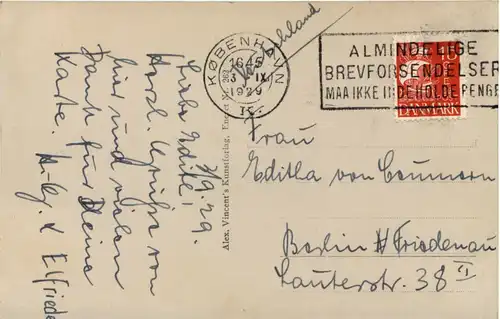 3/9.29.
Liebe Edith,
Herzl. Grüße von
hier und vielen
Dank für Deine
Karte.
Elfriede
Alex. Vincent's Kunstforlag. Eneret
KØBENHAVN
1645
3 IX
1929
K.
ALMINDELIGE
BREVFORSENDELSER
MAA IKKE INDEHOLDE PENGE
DANMARK
Frau
Editha von
Berlin Friedenau
Lauterstr. 38 II